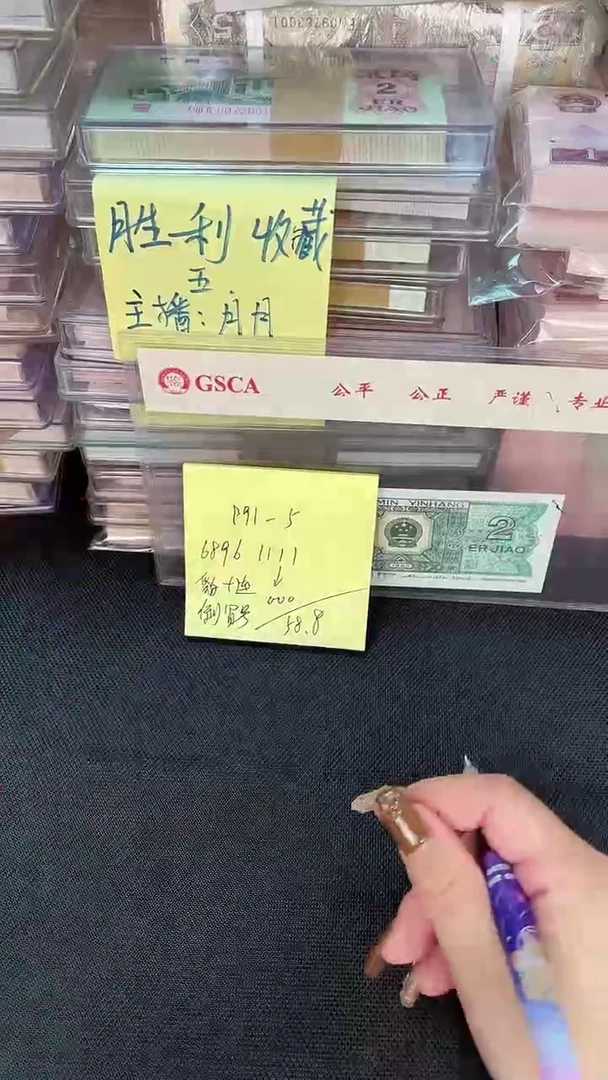 2
ER JIAO
1
胜利 收藏
五
主播：月月
GSCA 公平 公正 严谨 专业
P91-5
6896 1111
000
倒置号
58.8
MIN YINHANG
2
ER JIAO